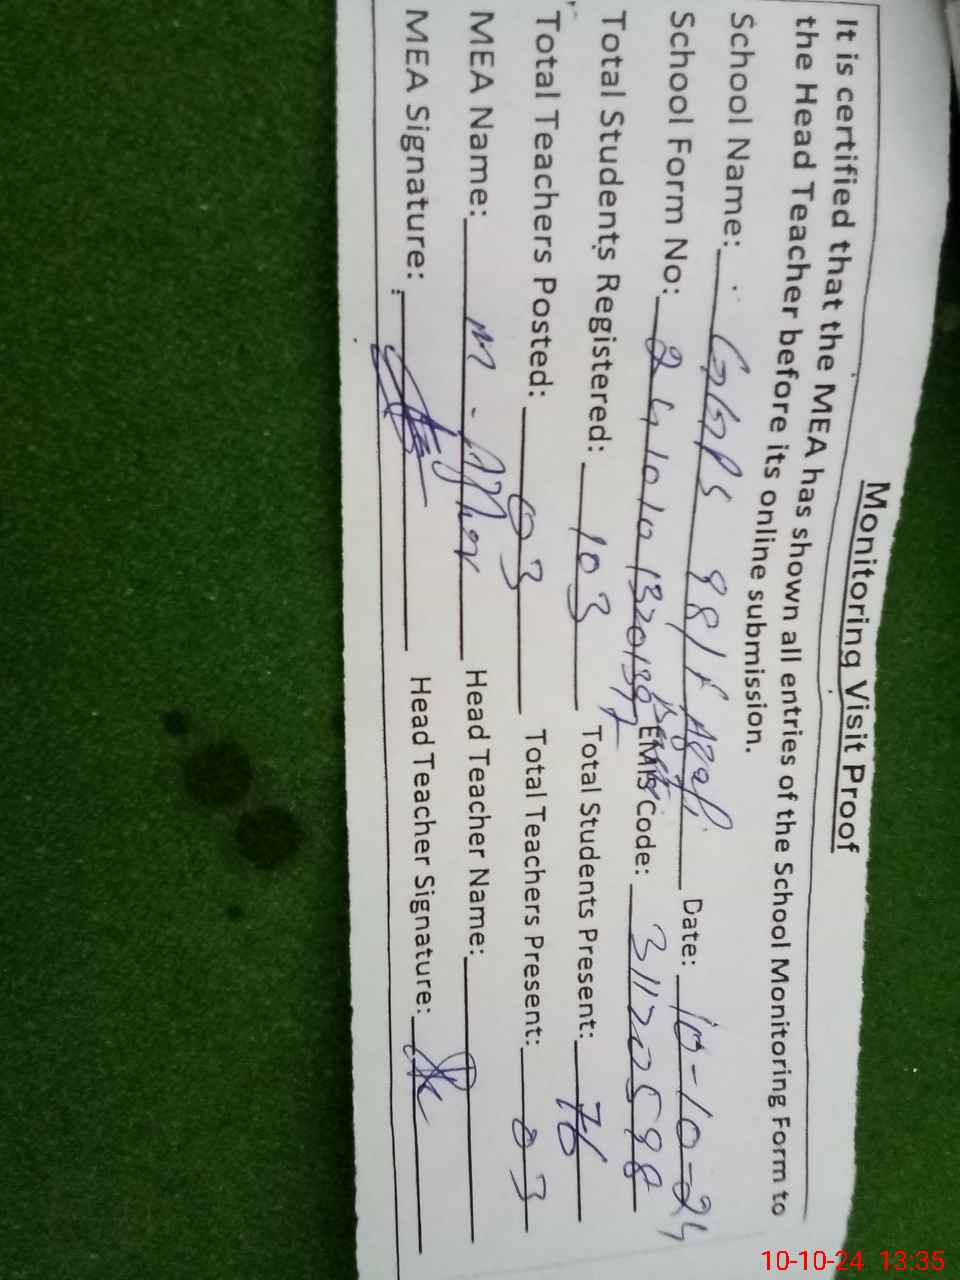 Monitoring Visit Proof
It is certified that the MEA has shown all entries of the School Monitoring Form to
the Head Teacher before its online submission.
School Name: GGPS 98/F Date: 10-10-24
School Form No: EMIS Code: 31120598
Total Students Registered: 103 Total Students Present: 76
Total Teachers Posted: 03 Total Teachers Present: 03
MEA Name: M. Head Teacher Name:
MEA Signature: Head Teacher Signature:
10-10-24 13:35